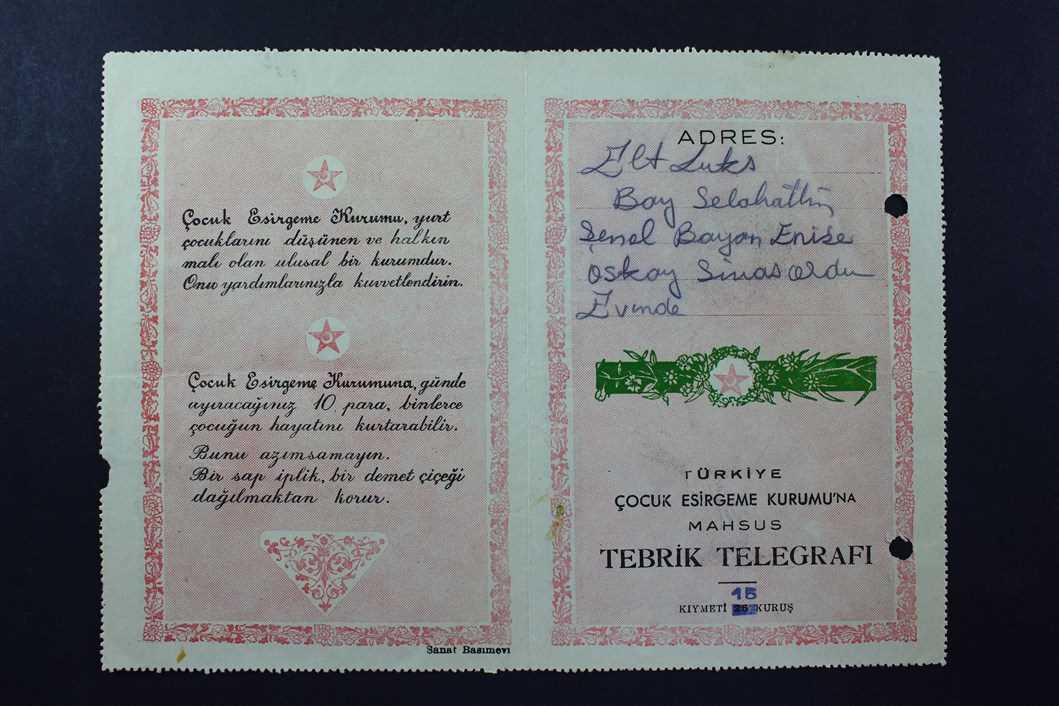 Çocuk Esirgeme Kurumu, yurt
çocuklarını düşünen ve halkın
malı olan ulusal bir kurumdur.
Onu yardımlarınızla kuvvetlendirin.
Çocuk Esirgeme Kurumuna, günde
ayıracağınız 10 para, binlerce
çocuğun hayatını kurtarabilir.
Bunu azımsamayın.
Bir sap iplik, bir demet çiçeği
dağılmaktan korur.
Sanat Basımevi
ADRES:
Elt Luks
Bay Selahattin
Şenel Bayan Enise
Oskay
Evinde
TÜRKİYE
ÇOCUK ESİRGEME KURUMU'NA
MAHSUS
TEBRİK TELEGRAFI
15
KIYMETİ 25 KURUŞ